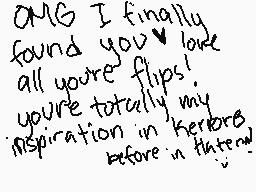 OMG I finally
found you ♥ love
all you're flips!
you're totally my
inspiration in
before in Hatena